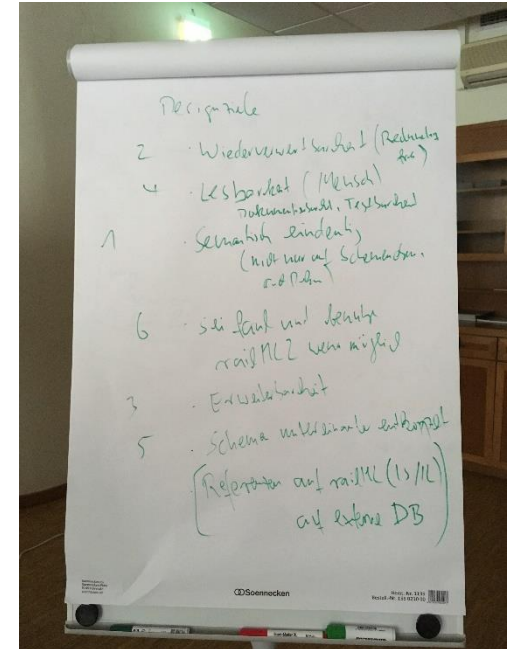 Designziele
2 · Wiederverwertbarkeit (Redundanz
frei)
4 · Lesbarkeit (Mensch)
Dokumentierbarkeit, Testbarkeit
1 · Semantisch eindeutig
(nicht nur auf Schemaebene,
6 · sei faul und benutze
railML2 wenn möglich
3 · Erweiterbarkeit
5 · Schema untereinander entkoppelt
(Referenzen auf railML (IS/IL)
auf externe DB)
Soennecken